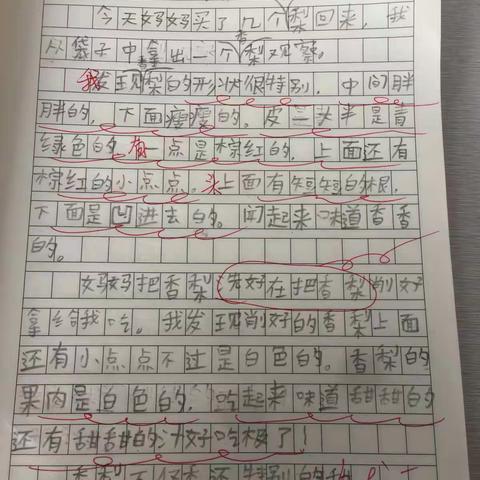 今天妈妈买了几个香梨回来，我
从袋子中拿出一个香梨观察。
我发现梨的形状很特别，中间胖
胖的，下面瘦瘦的。皮一大半是青
绿色的有一点是棕红的，上面还有
棕红的小点点。头上面有短短的根，
下面是凹进去的。闻起来味道香香
的。
妈妈把香梨先好在把香梨削好
拿给我吃。我发现削好的香梨上面
还有小点点不过是白色的。香梨的
果肉是白色的，吃起来味道甜甜的
还有甜甜的汁好吃极了！
香梨不仅香还特别的